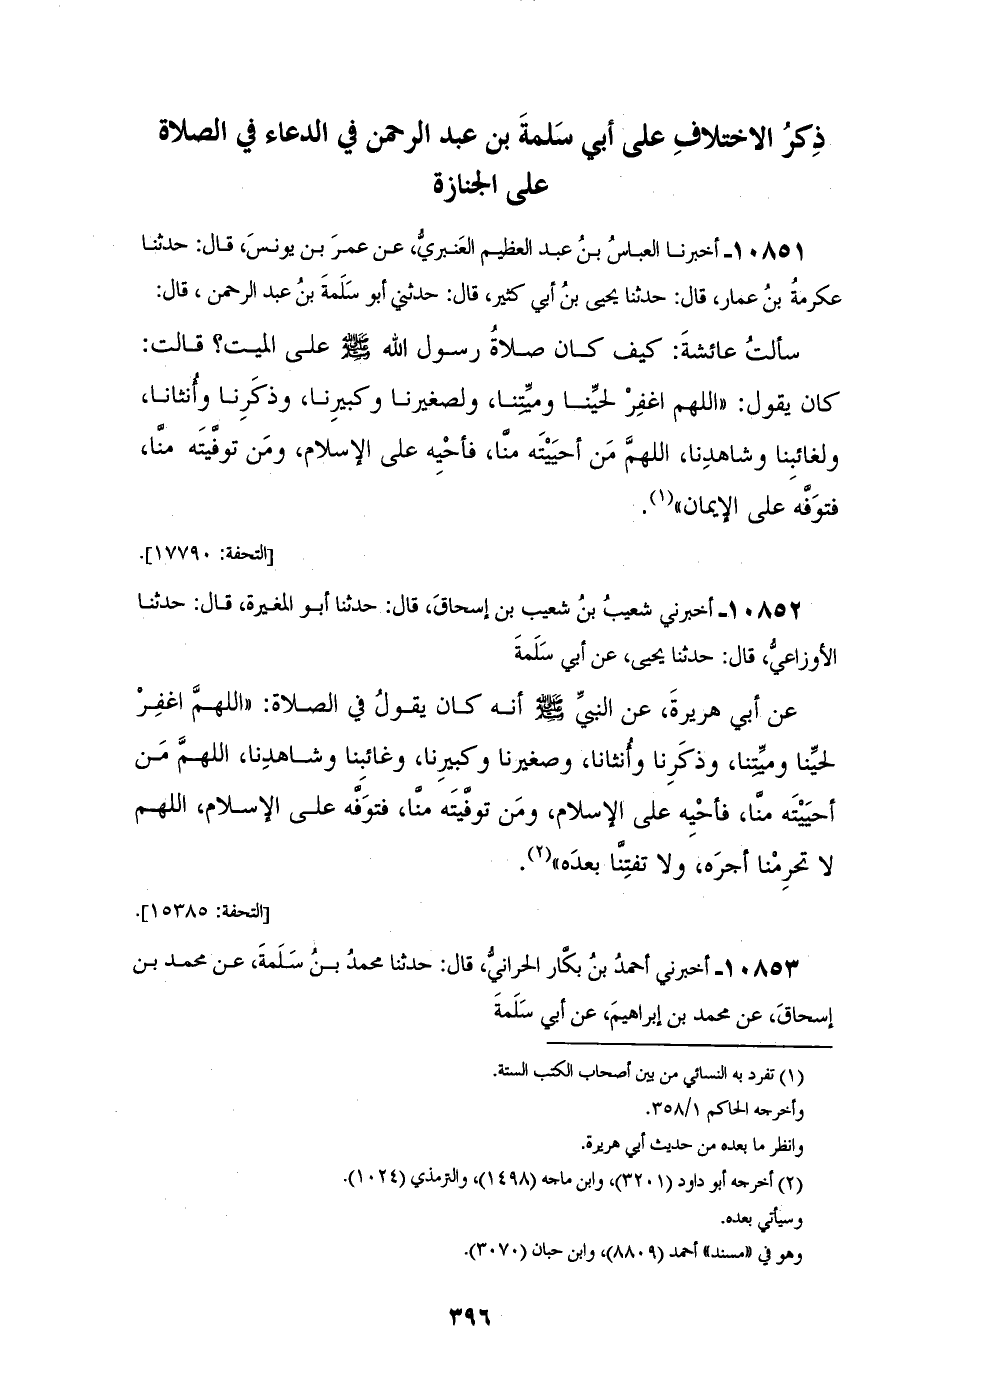 ذِكرُ الاختلافِ على أبي سَلمةَ بن عبد الرحمن في الدعاء في الصلاة
على الجنازة
١٠٨٥١ـ أخبرنـا العبـاسُ بـنُ عبـد العظيـم العَنـبريُّ، عـن عمـرَ بـن يونـسَ، قـال: حدثنـا
عكرمةُ بنُ عمار، قال: حدثنا يحيى بنُ أبي كثير، قال: حدثني أبو سَلَمةَ بنُ عبد الرحمن ، قال:
سألتُ عائشةَ: كيف كـان صـلاةُ رسـول الله ﷺ علـى الميت؟ قـالت:
كان يقول: «اللهم اغفِرْ لحيِّنـا وميِّتِنـا، ولصغيرنـا وكبيرِنـا، وذكَرِنـا وأُنثانـا،
ولغائبِنا وشاهدِنا، اللهمَّ مَن أحيَيْتَه منَّا، فأحْيِه على الإسلام، ومَن توفَّيتَه منَّا،
فتوَفَّه على الإيمان»(١).
[التحفة: ١٧٧٩٠].
١٠٨٥٢ـ أخبرني شعيبُ بنُ شعيب بن إسحاقَ، قال: حدثنا أبـو المغيرة، قـال: حدثنـا
الأوزاعيُّ، قال: حدثنا يحيى، عن أبي سَلَمةَ
عن أبي هريرةَ، عن النبيِّ ﷺ أنـه كـان يقولُ في الصـلاة: «اللهـمَّ اغفِـرْ
لحيِّنا وميِّتِنا، وذكَرِنا وأُنثانا، وصغيرنا وكبيرِنا، وغائبِنا وشـاهدِنا، اللهـمَّ مَـن
أحيَيْتَه منَّا، فأحْيِه على الإسلام، ومَن توفَّيتَه منَّا، فتوَفَّه علـى الإسـلام، اللهـم
لا تحرِمْنا أجرَه، ولا تفتِنَّا بعدَه»(٢).
[التحفة: ١٥٣٨٥].
١٠٨٥٣ـ أخبرني أحمدُ بنُ بكَّار الحرانيُّ، قال: حدثنا محمدُ بـنُ سَـلَمةَ، عـن محمـد بـن
إسحاقَ، عن محمد بن إبراهيمَ، عن أبي سَلَمةَ
(١) تفرد به النسائي من بين أصحاب الكتب الستة.
وأخرجه الحاكم ٣٥٨/١.
وانظر ما بعده من حديث أبي هريرة.
(٢) أخرجه أبو داود (٣٢٠١)، وابن ماجه (١٤٩٨)، والترمذي (١٠٢٤).
وسيأتي بعده.
وهو في «مسند» أحمد (٨٨٠٩)، وابن حبان (٣٠٧٠).
٣٩٦